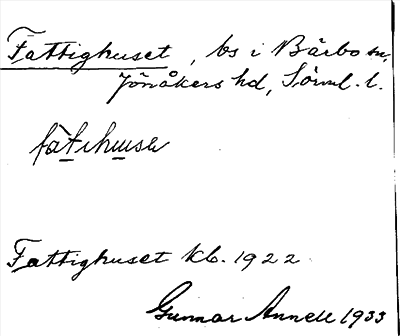 Fattighuset, bs i Bärbo sn,
Jönåkers hd, Sörml. l.
fàtihusə
Fattighuset kb. 1922
Gunnar Annell 1933